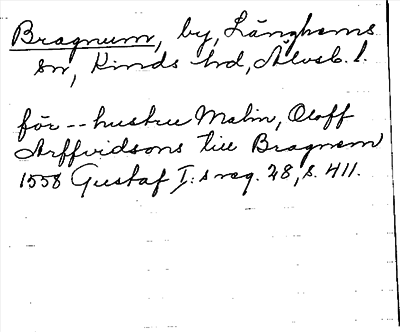 Bragnum, by, Länghems
sn, Kinds hd, Älvsb. l.
för -- hustru Malin, Oloff
Arffvidsons till Bragnem
1558 Gustaf I:s reg. 28, s. 411.